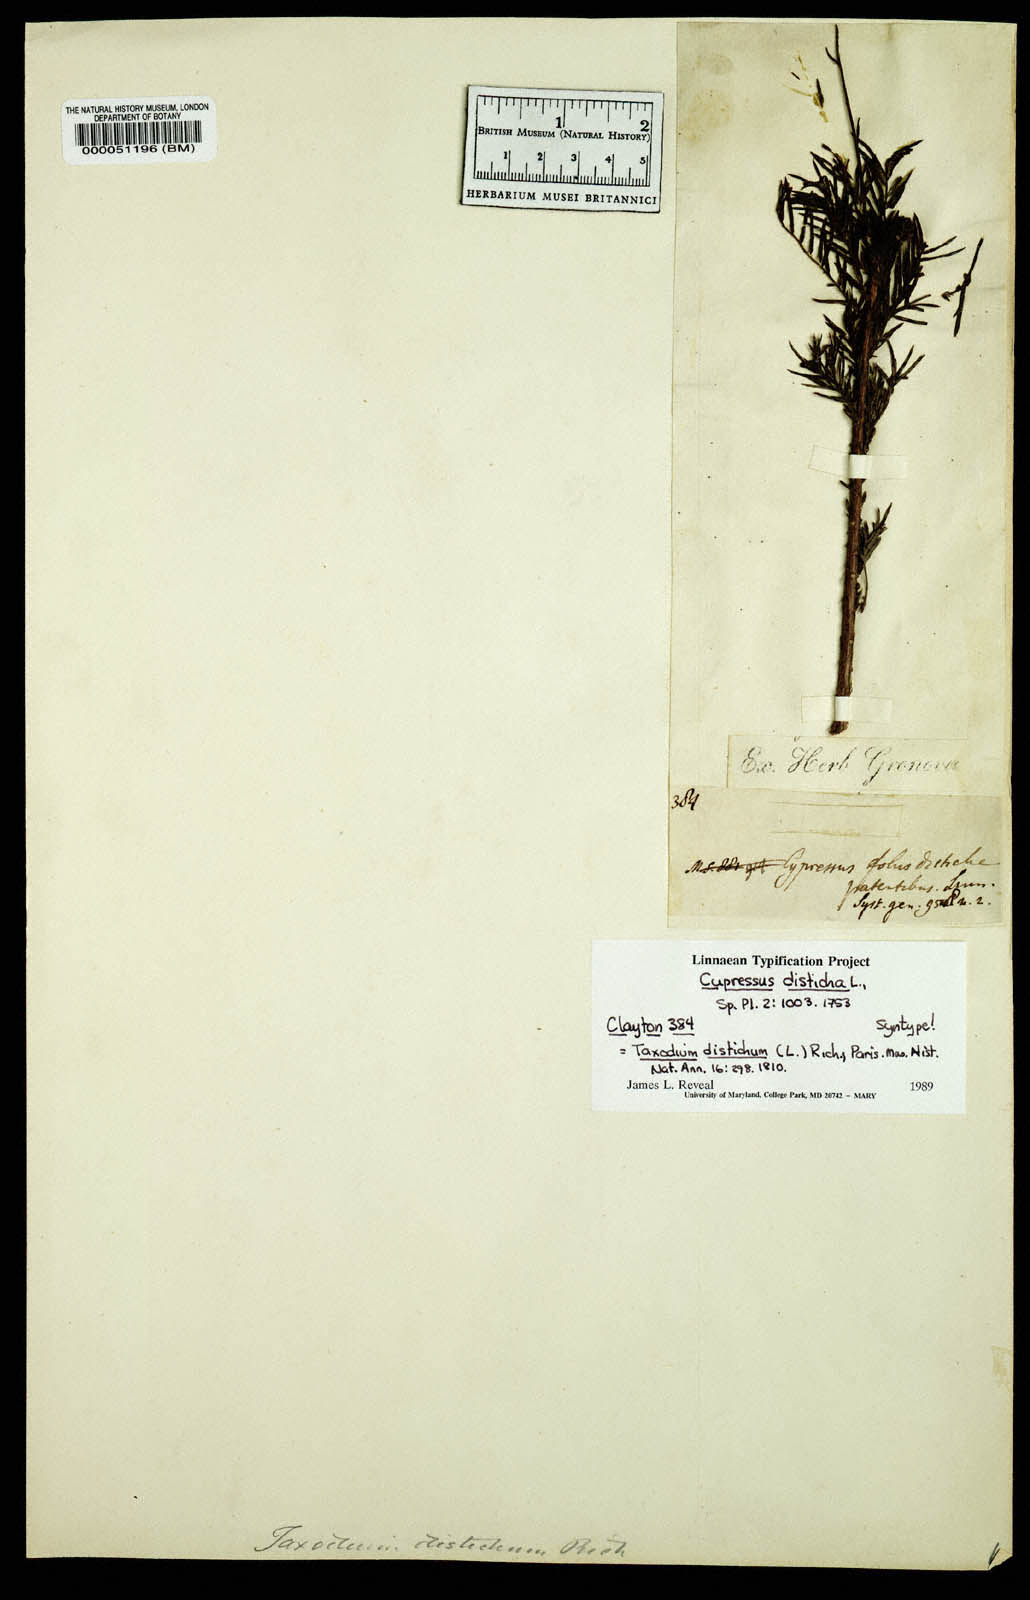 THE NATURAL HISTORY MUSEUM, LONDON
DEPARTMENT OF BOTANY
000051196 (BM)
1 2
BRITISH MUSEUM (NATURAL HISTORY)
1 2 3 4 5
HERBARIUM MUSEI BRITANNICI
Ex. Herb Gronovii
384
Cypressus foliis distiche
patentibus. Linn.
Syst. gen. n. 2.
Linnaean Typification Project
Cupressus disticha L.,
Sp. Pl. 2: 1003. 1753
Clayton 384 Syntype!
= Taxodium distichum (L.) Rich., Paris. Mus. Hist.
Nat. Ann. 16: 298. 1810.
James L. Reveal 1989
University of Maryland, College Park, MD 20742 – MARY
Taxodium distichum Rich